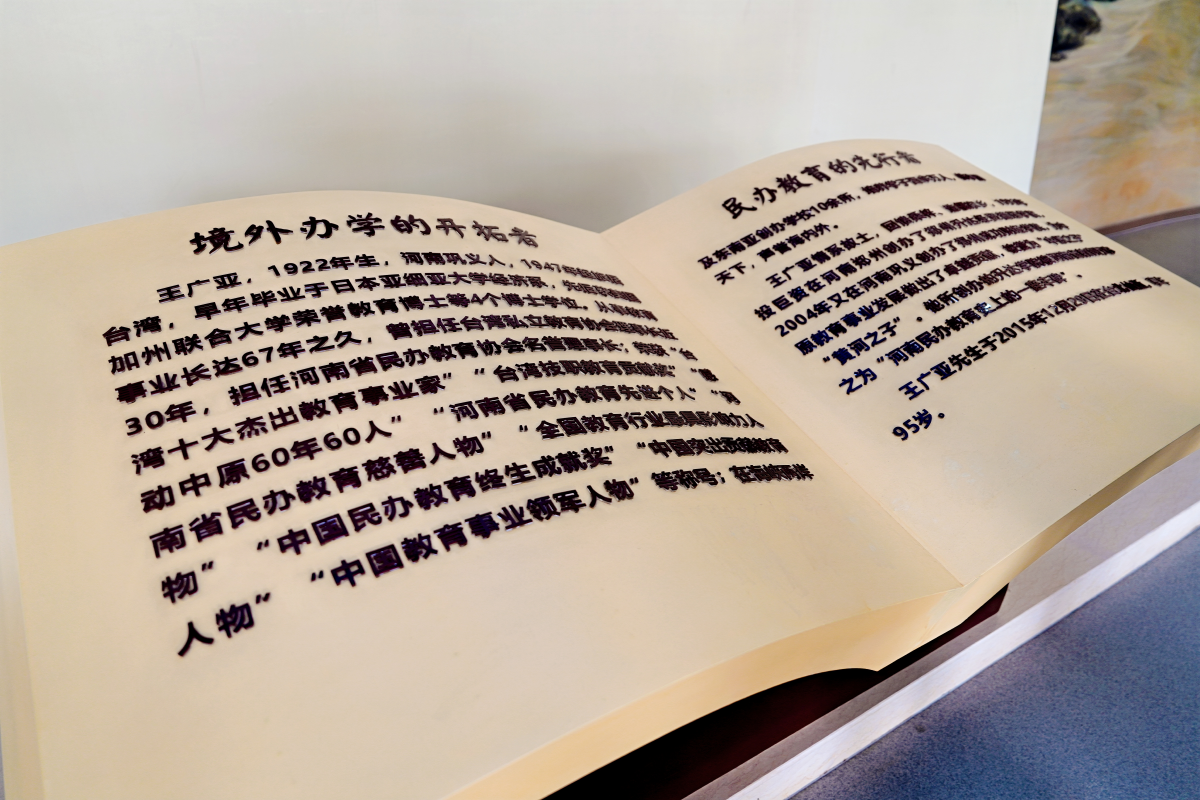 境外办学的开拓者
王广亚，1922年生，河南巩义人，1947年
台湾，早年毕业于日本亚细亚大学经济系，先后
加州联合大学荣誉教育博士等4个博士学位。从事教育
事业长达67年之久，曾担任台湾私立教育协会理事长近
30年，担任河南省民办教育协会名誉理事长；荣获“台
湾十大杰出教育事业家”“台湾技职教育贡献奖”“感
动中原60年60人”“河南省民办教育先进个人”“河
南省民办教育慈善人物”“全国教育行业最具影响力人
物”“中国民办教育终生成就奖”“中国突出贡献教育
人物”“中国教育事业领军人物”等称号；在海峡两岸
民办教育的先行者
及东南亚创办学校10余所，
天下，声誉海内外。
王广亚情系故土，回馈桑梓，
投巨资在河南郑州创办了郑州升达
2004年又在河南巩义创办了
原教育事业发展做出了
“黄河之子”。他所创办的升达学
之为“河南民办教育史上的一面
王广亚先生于2015年12月29日
95岁。